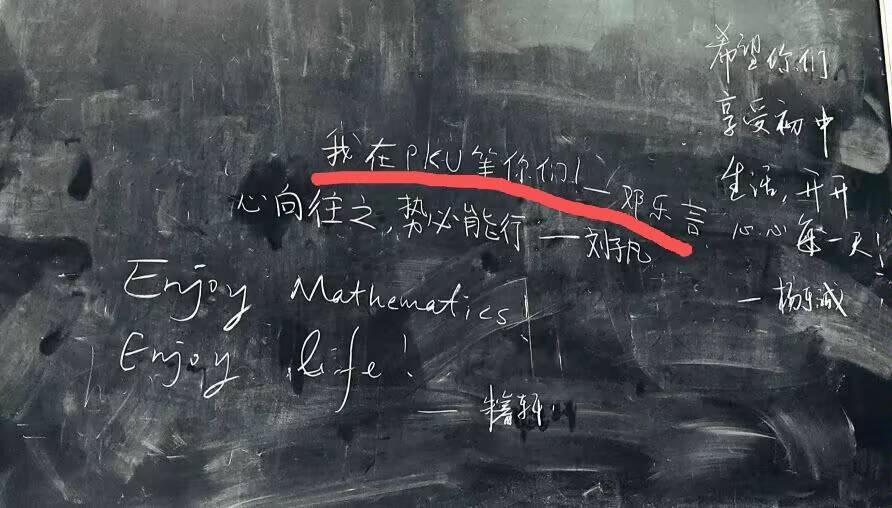 我在PKU等你们！—邓乐言
心向往之，势必能行 —刘子凡
Enjoy Mathematics!
Enjoy life!
—朱睿轩
希望你们
享受初中
生活，开开
心心每一天！
—杨东诚